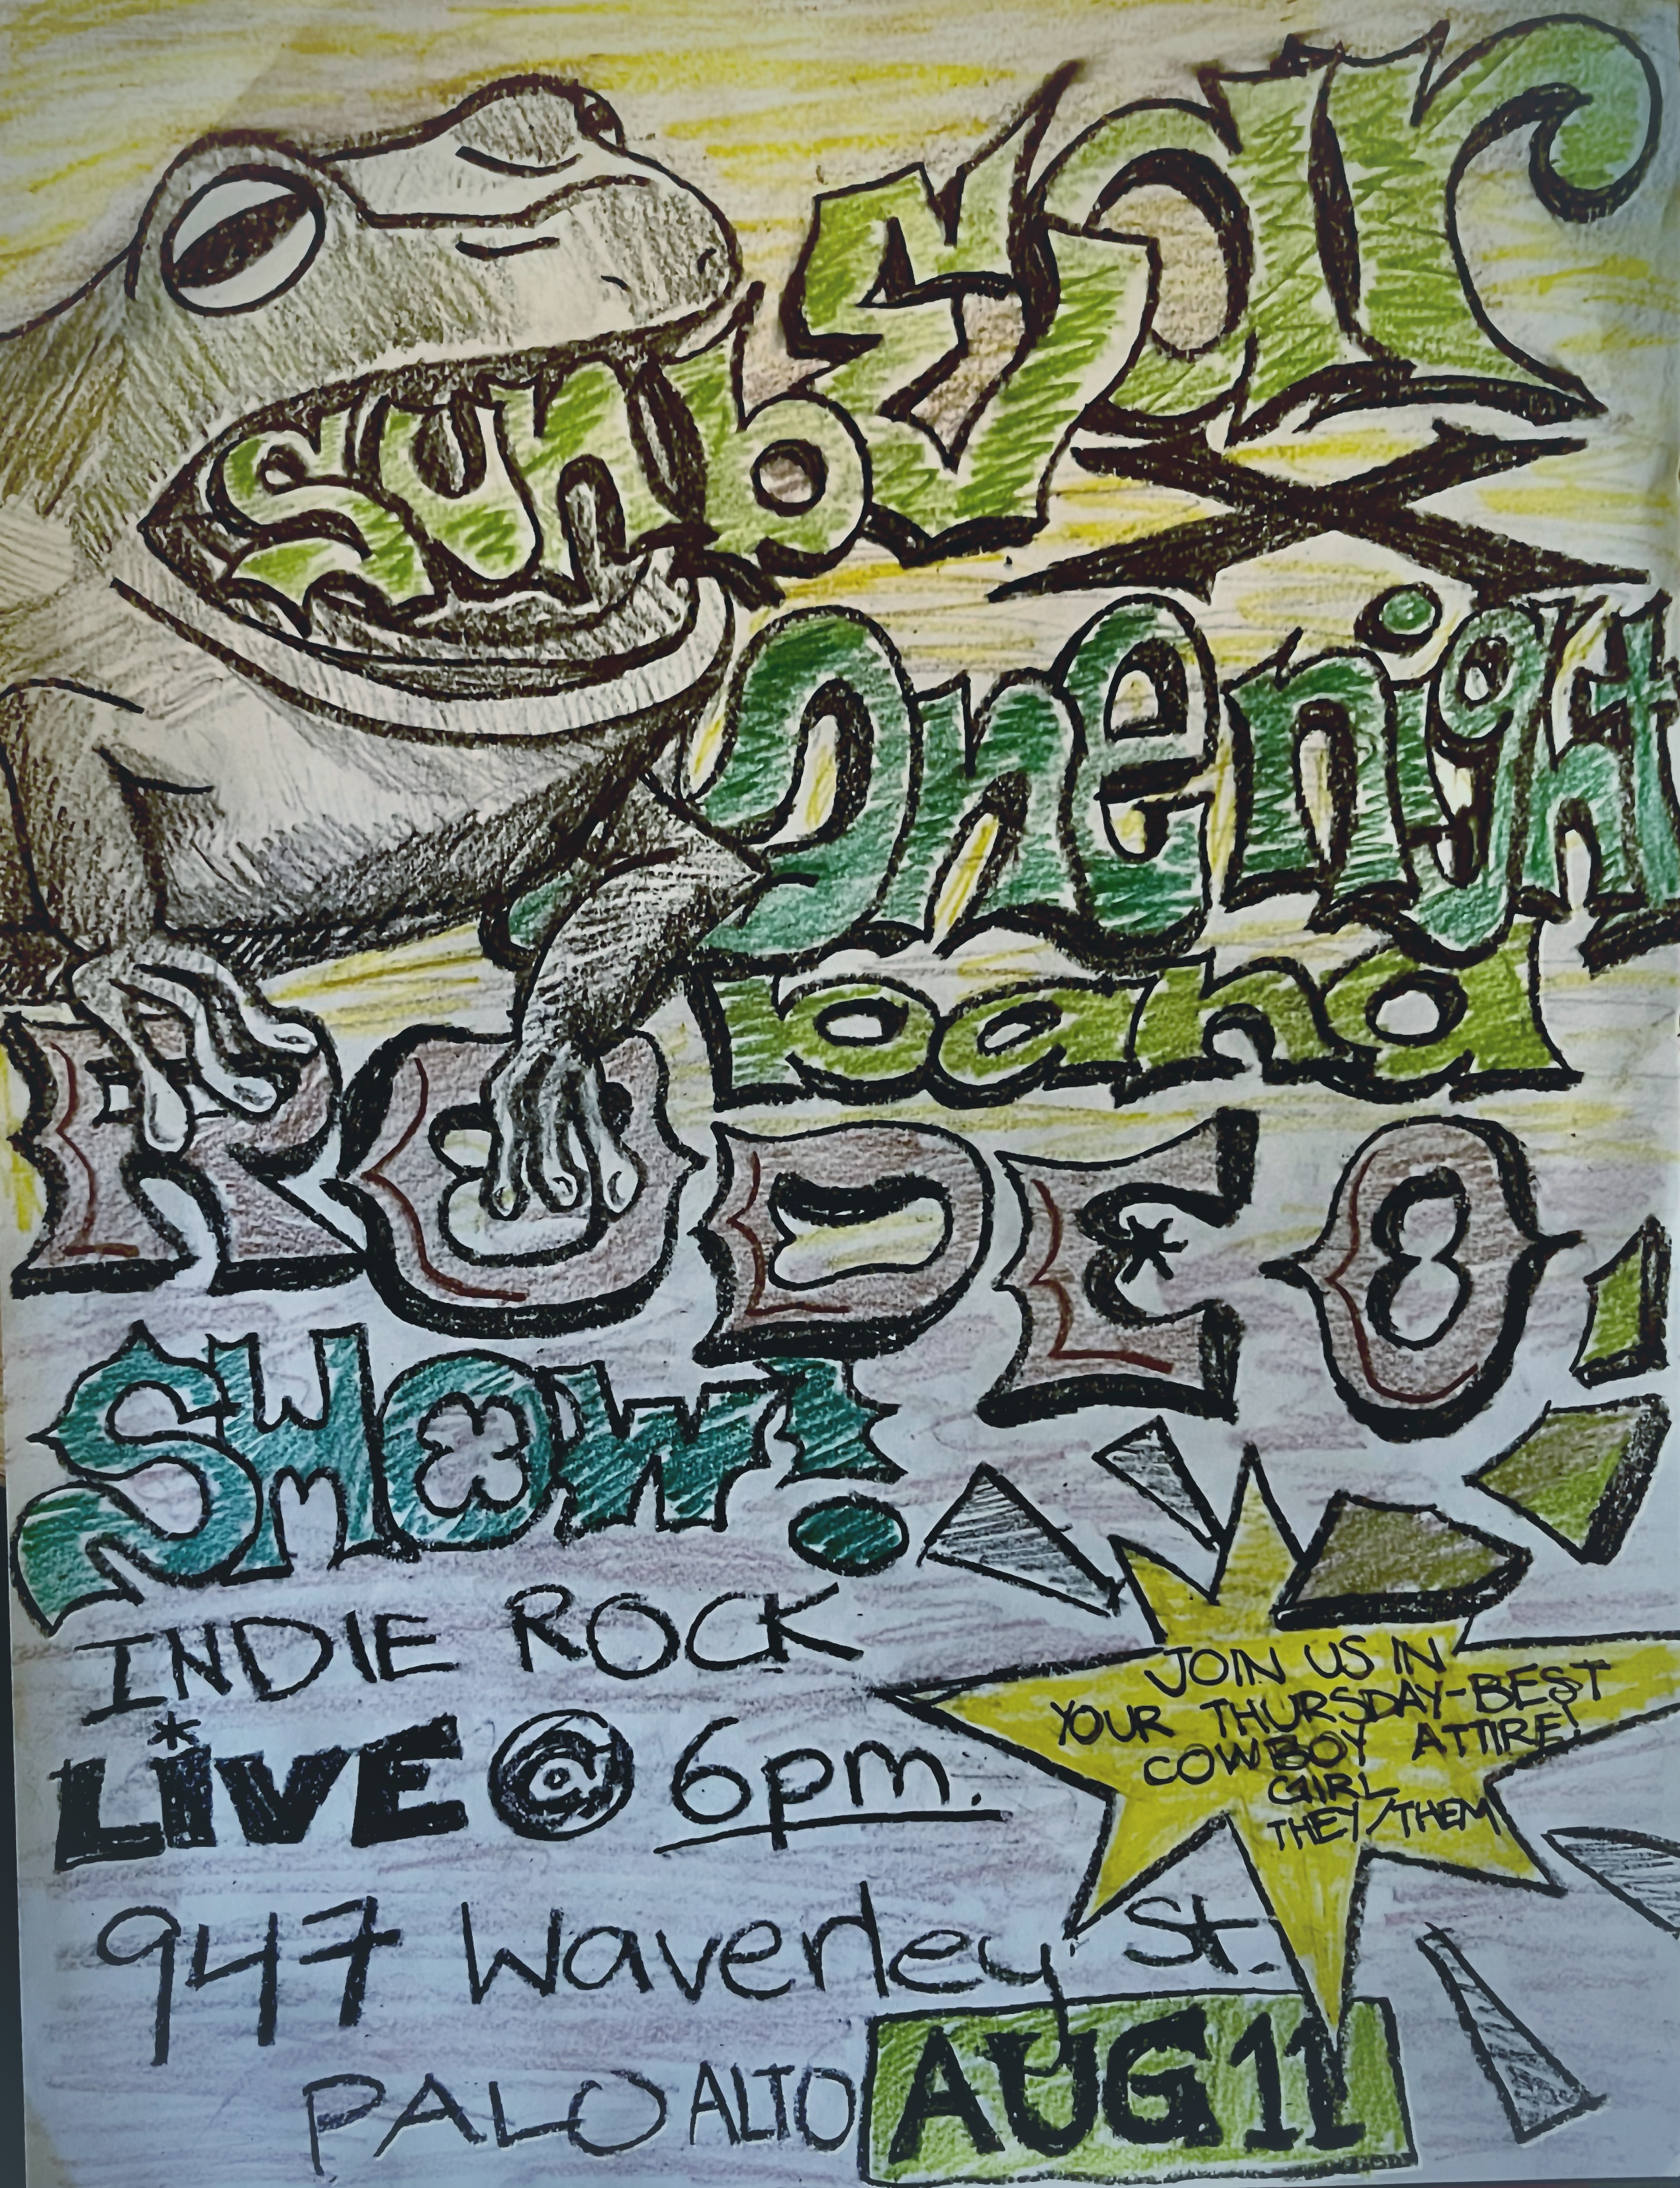 sunbEar
X
One night
band
RODEO
SHOW!
INDIE ROCK
LiVE @ 6pm.
JOIN US IN
YOUR THURSDAY-BEST
COWBOY ATTIRE!
GIRL
THEY/THEM
947 Waverley St.
PALO ALTO AUG 11